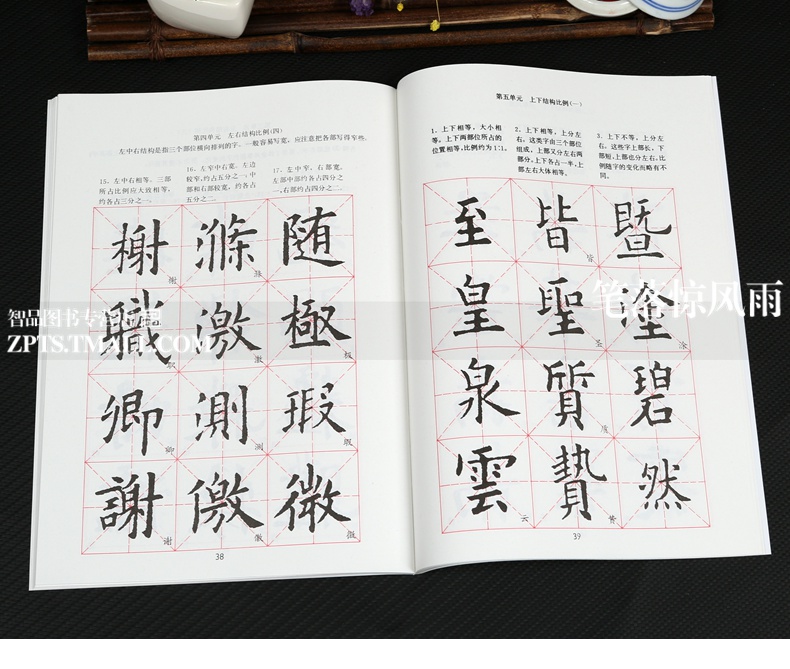 第四单元 左右结构比例(四)
左中右结构是指三个部位横向排列的字。一般容易写宽,应注意把各部写得窄些。
15、左中右相等。三部
所占比例应大致相等,
约各占三分之一。
16、左窄中右宽。左边
较窄,约占五分之一,中
部和右部较宽,约各占
五分之二。
17、左中窄,右部宽。
左部中部约各占四分之
一,右部约占四分之二。
榭 滌 随
職 激 極
卿 測 瑕
謝 儌 微
38
第五单元 上下结构比例(一)
1、上下相等,大小相
等。上下两部位所占的
位置相等,比例约为1:1。
2、上下相等,上分左
右。这类字由三个部位
组成,上部又分左右两
部分。上下各占一半,上
部左右大体相等。
3、上下不等,上分左
右。这些字上部长,下
部短,上部也分左右,比
例随字的变化而略有不
同。
至 皆 暨
皇 聖 塗
泉 質 碧
雲 贄 然
39
智品图书专
ZPTS.TMALL.COM
笔落惊风雨